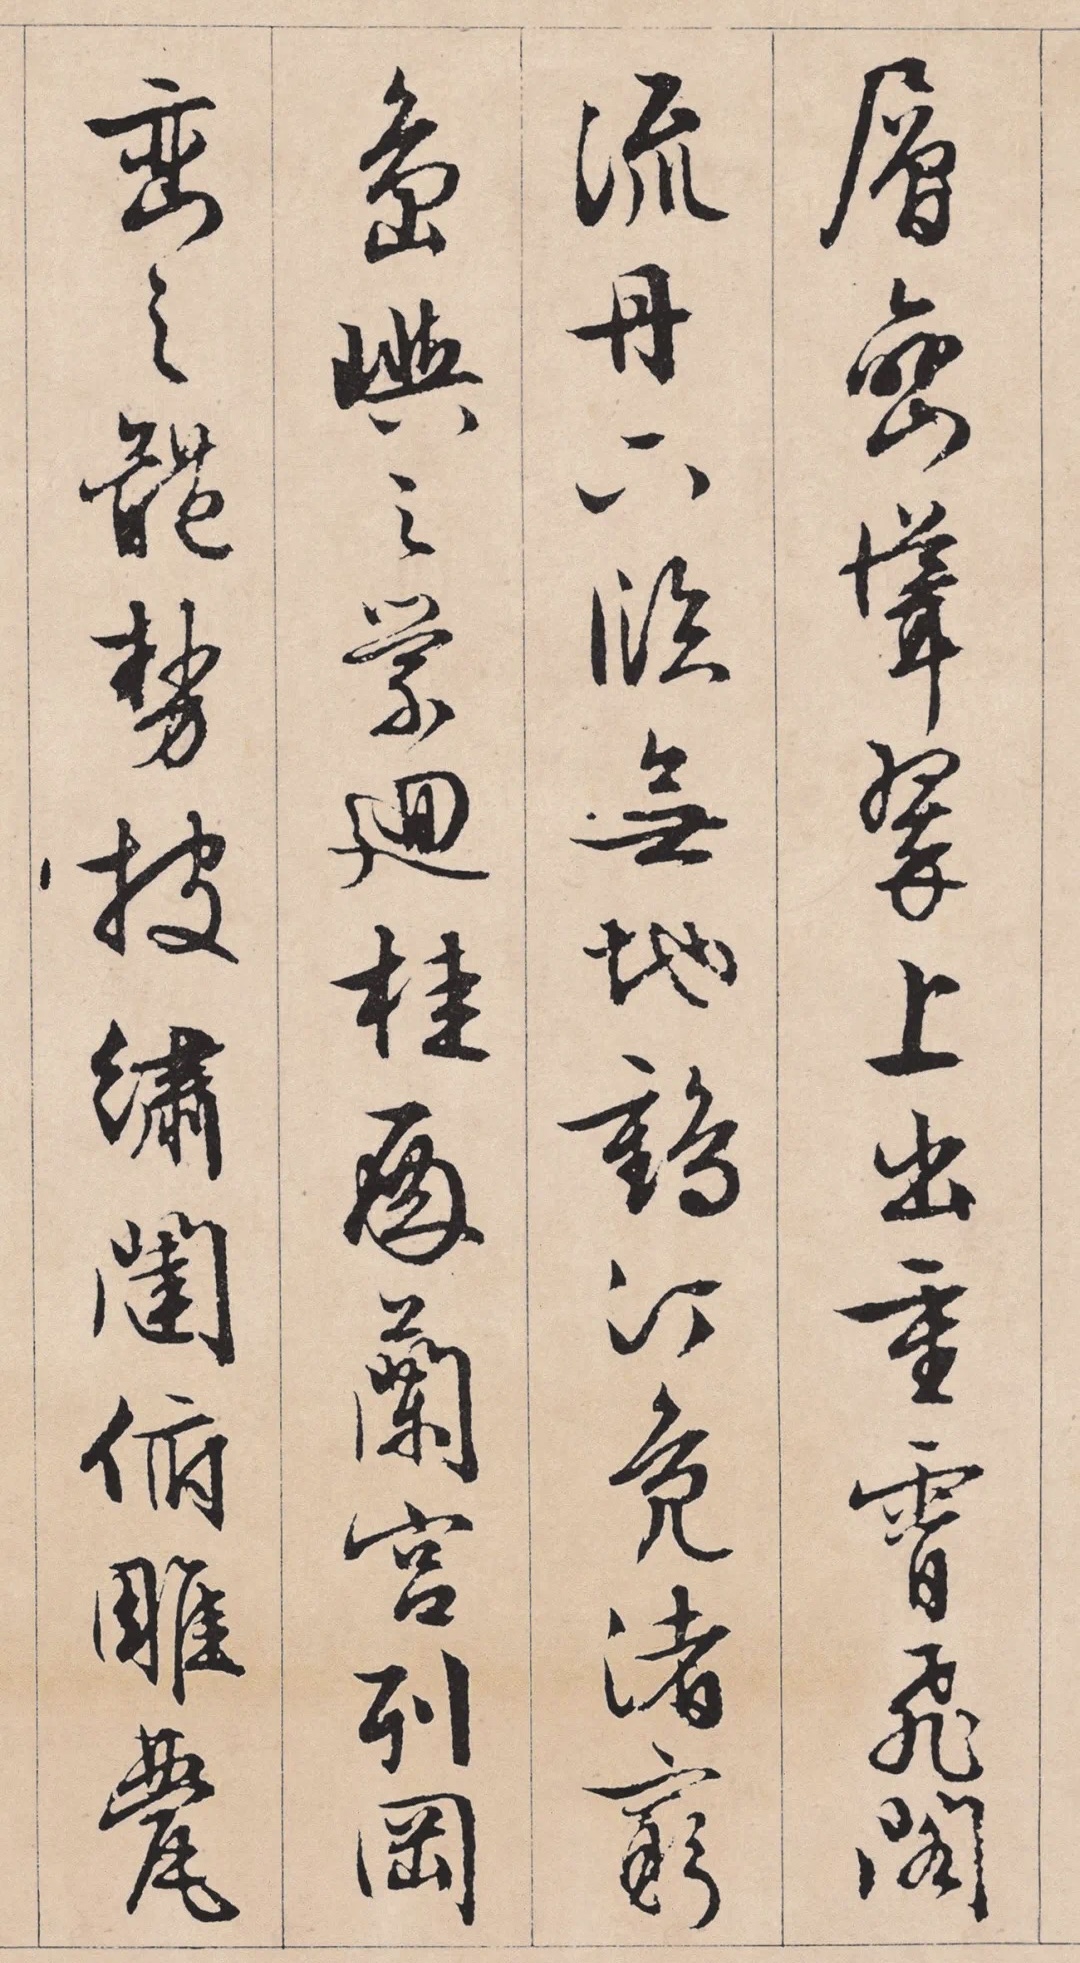 層巒聳翠上出重霄飛閣
流丹下臨無地鶴汀鳧渚窮
島嶼之縈廻桂殿蘭宮列岡
巒之體勢披繡闥俯雕甍